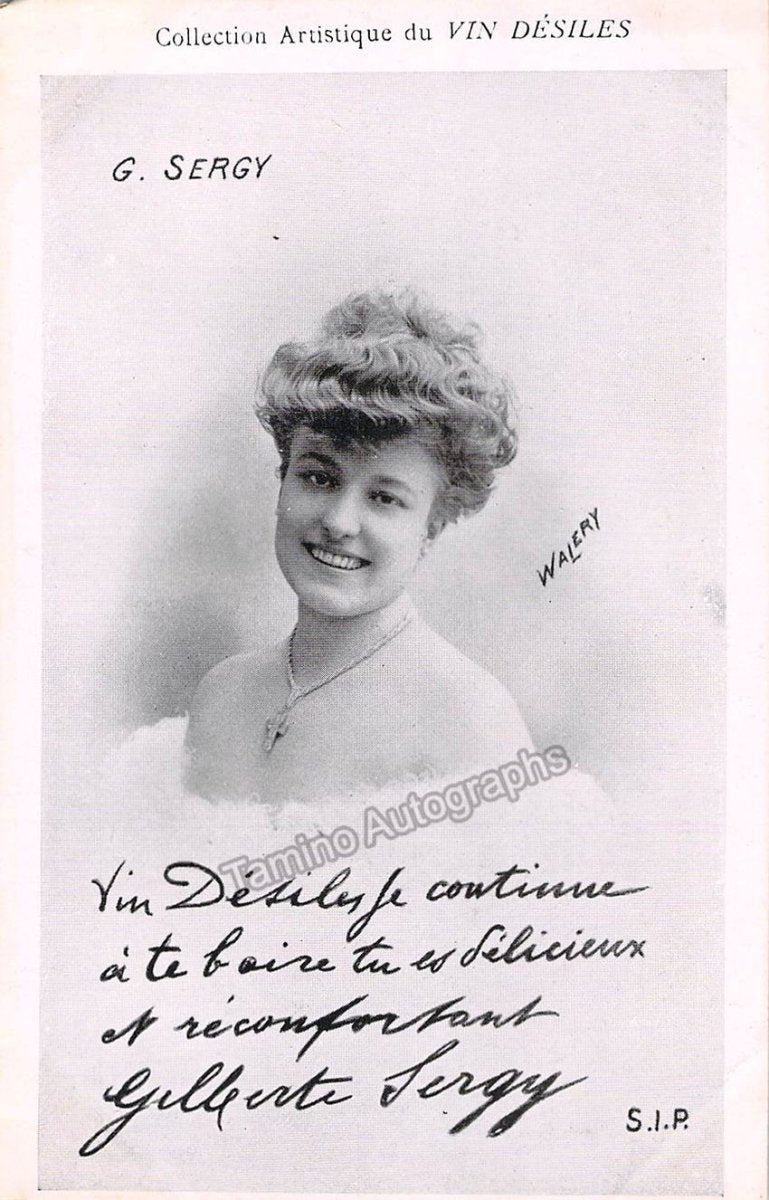 Collection Artistique du VIN DÉSILES
G. SERGY
WALERY
Tamino Autographs
Vin Désiles Je continue
à te boire tu es délicieux
et réconfortant
Gilberte Sergy
S.I.P.